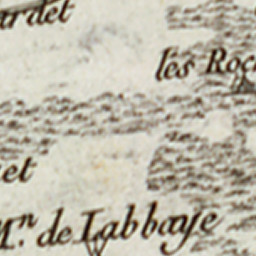 ardet
les Roc
et
M.n de Labbaye